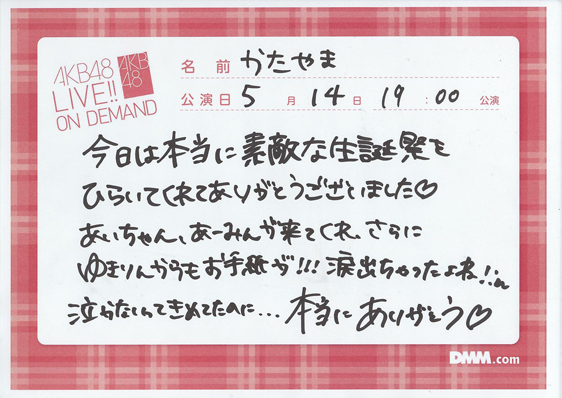 AKB48
LIVE!!
ON DEMAND
AKB
48
名前 かたやま
公演日 5月14日 19:00 公演
今日は本当に素敵な生誕祭を
ひらいてくれてありがとうございました♡
あいちゃん、あーみんが来てくれ、さらに
ゆきりんからもお手紙が!!! 涙出ちゃったよね!
泣らないってきめてたのに... 本当にありがとう♡
DMM.com